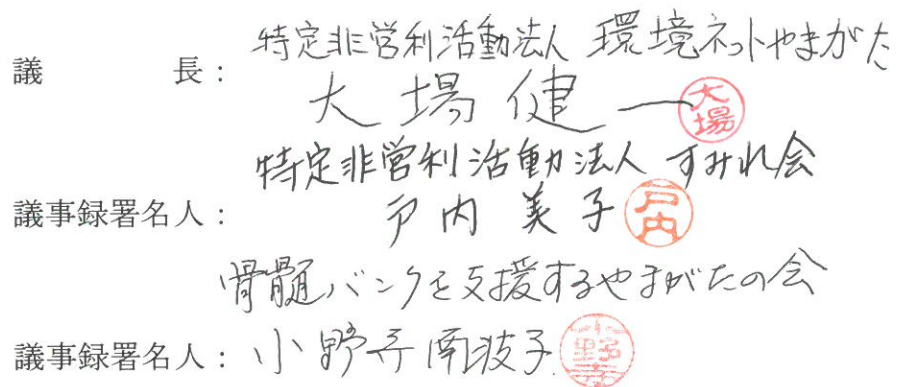 特定非営利活動法人 環境ネットやまがた
議長:
大場健一 大場
特定非営利活動法人 すみれ会
議事録署名人:
戸内美子 戸内
骨髄バンクを支援するやまがたの会
議事録署名人: 小野寺南波子 小野寺